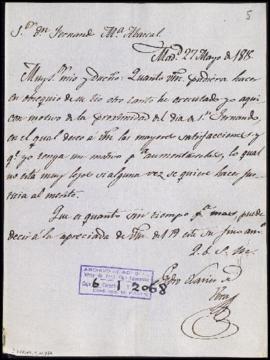 5
S.r dn Fernando Ma. Abarcal
Mad.d 27 Mayo de 1815.
Muy S.r mio y Dueño: Quanto Vm. pudiera hacer
en obsequio de su Tio otro tanto he executado yo aqui
con motivo de la proximidad del dia de Sn. Fernando
en el qual deseo a Vm. las mayores satisfacciones y
qe. yo tenga un motivo pa. aumentarselas, lo qual
no está muy lejos si alguna vez se quiere hacer jus-
ticia al merito.
Que es quanto sin tiempo pa. mas, puede
decir á la apreciada de Vm. de 19 este su
Q. B. S. M.
Pedro
ARCHIVO
6-1-2068